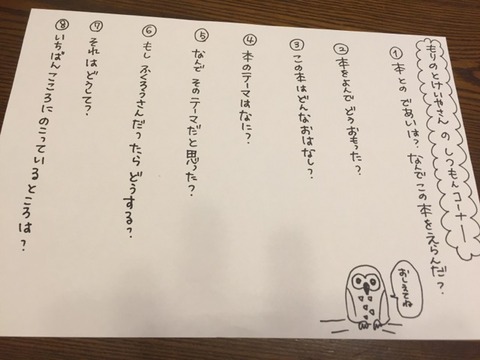 もりのとけいやさん の しつもんコーナー
① 本との であいは？なんでこの本をえらんだ？
② 本をよんで どうおもった？
③ この本はどんなおはなし？
④ 本のテーマはなに？
⑤ なんで そのテーマだと思った？
⑥ もし ふくろうさんだったらどうする？
⑦ それはどうして？
⑧ いちばんこころにのこっているところは？
おしえてね